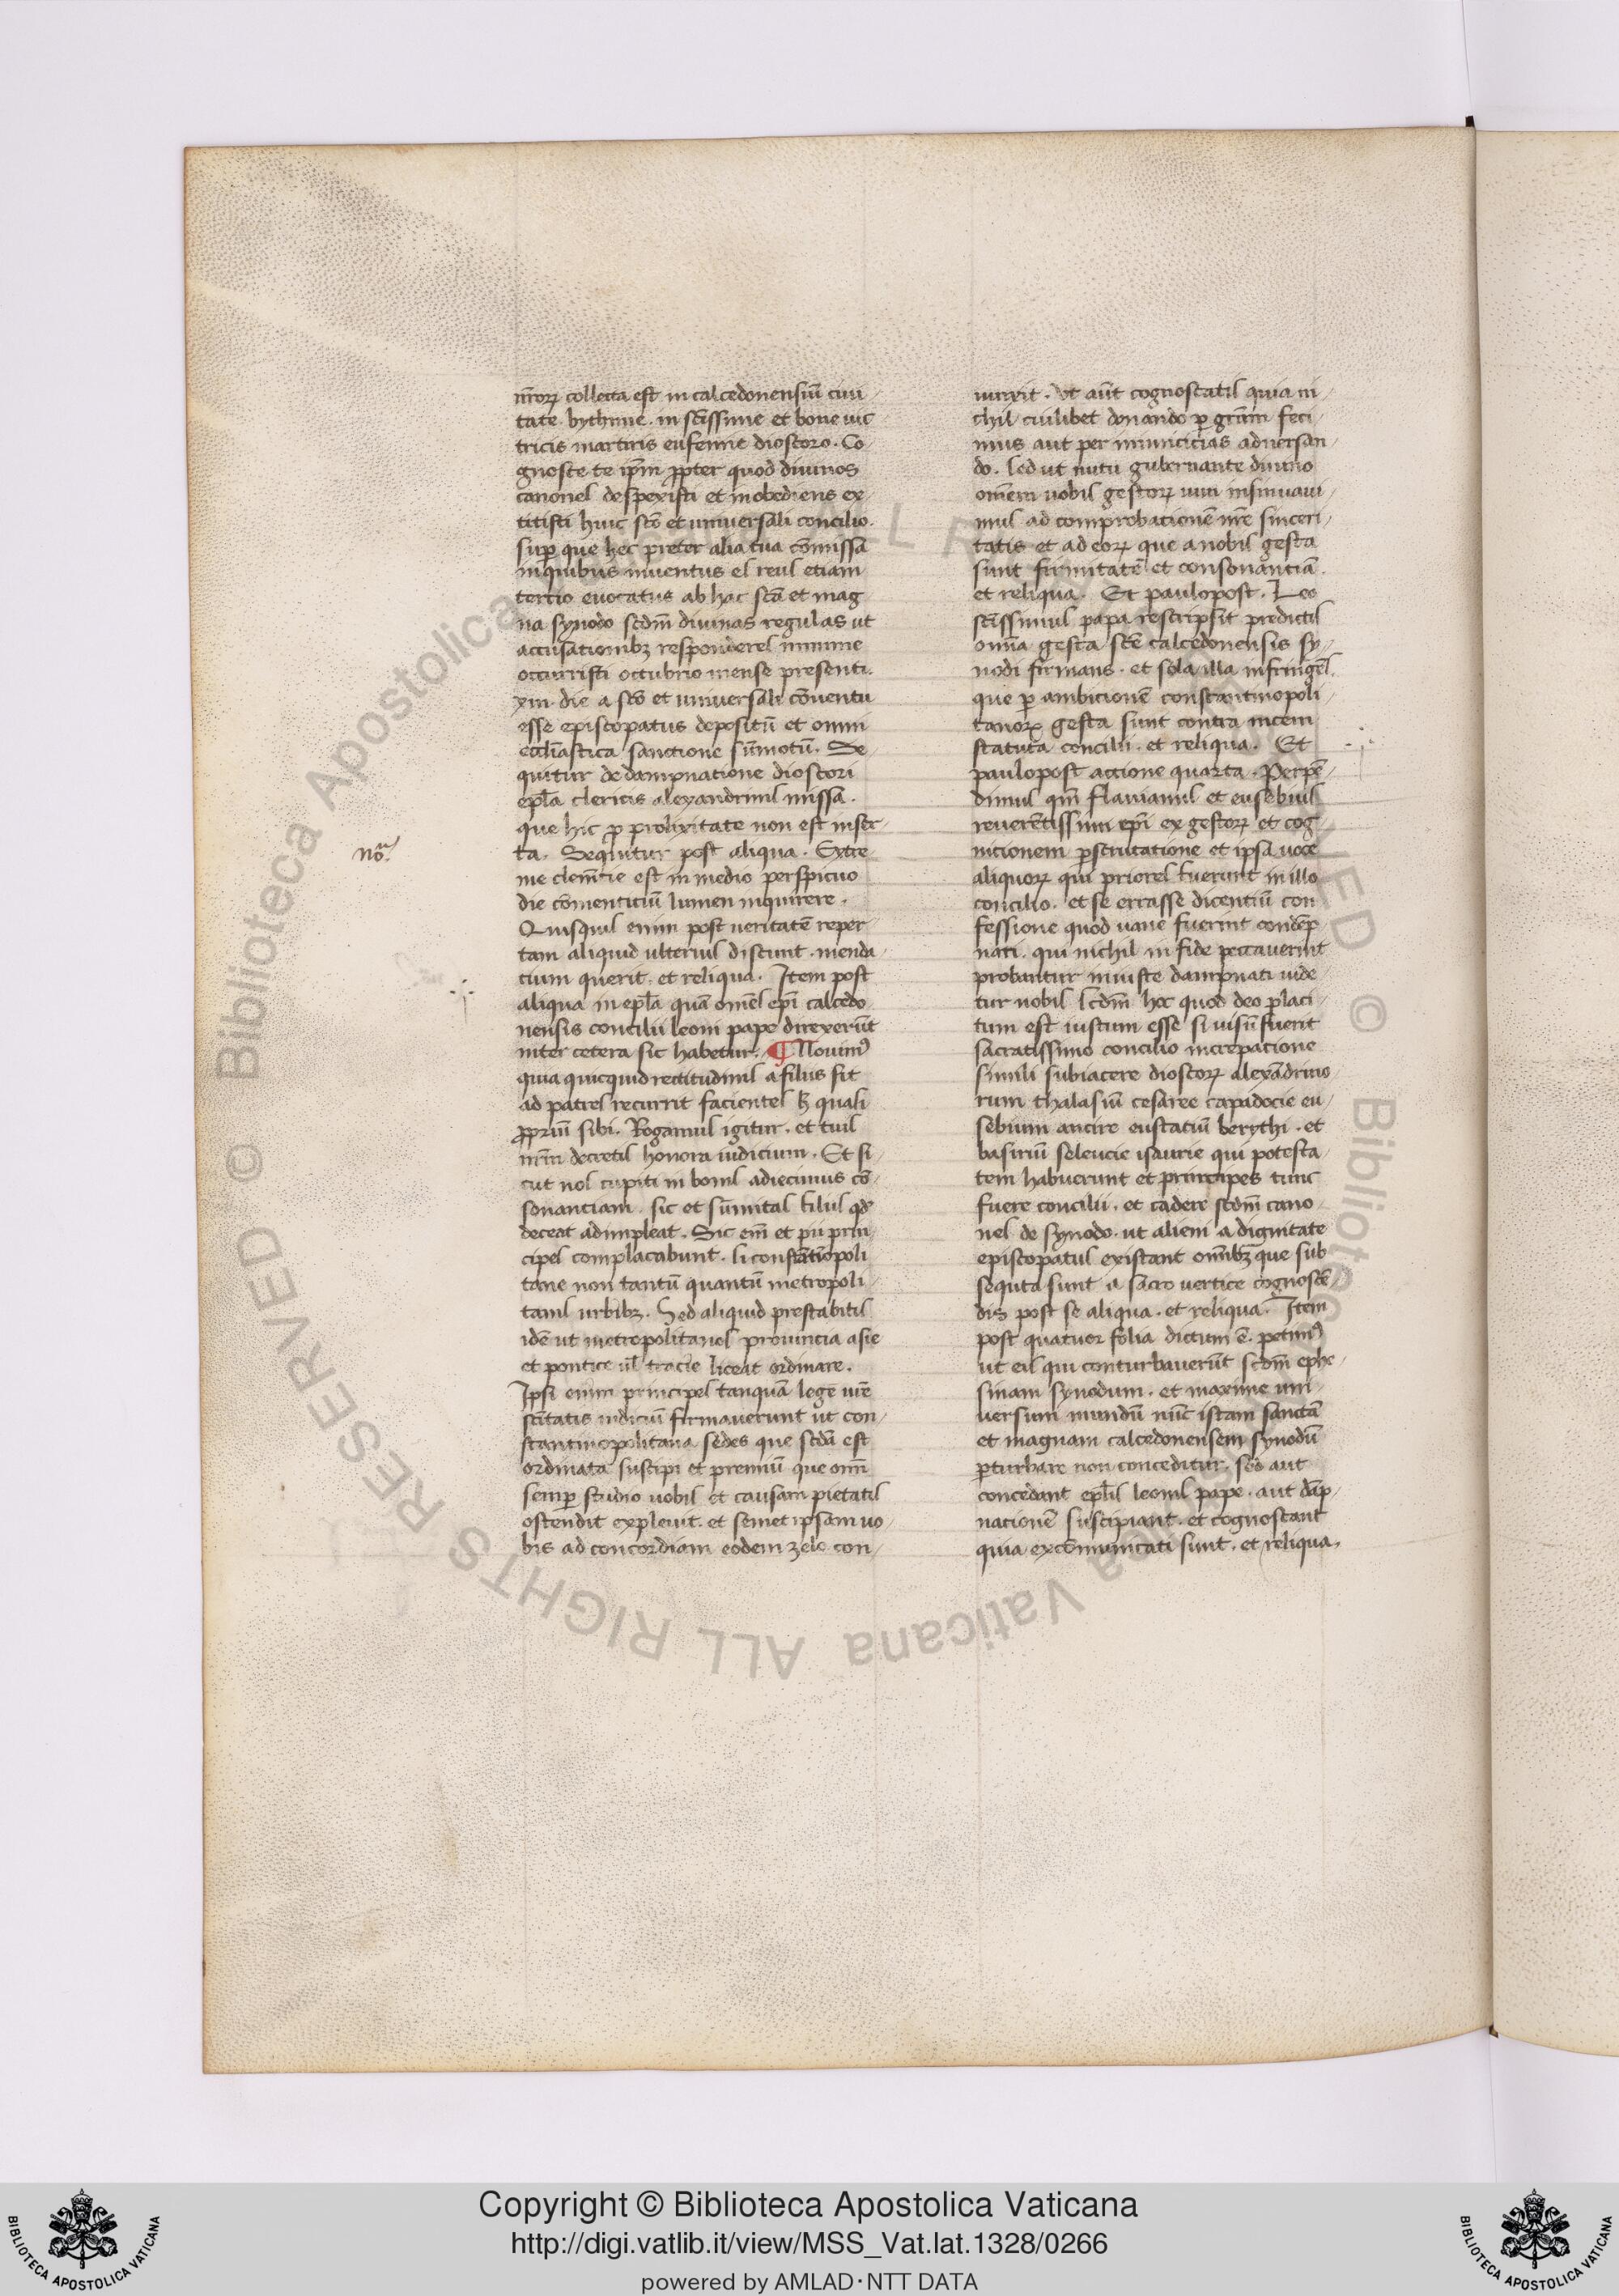 nr̄orꝝ collecta est in calcedonensiū ciui
tate bythinie. in sc̄issime et bone uic
tricis martiris eufemie dioscoro. Co
gnosce te ip̄m ꝓpter quod diuinos
canones despexisti et inobediens ex
titisti huic sc̄o et uniuersali concilio.
suꝑ que hec preter alia tua cōmissa
in quibus inuentus es reus etiam
tertio euocatus ab hac sc̄a et mag
na synodo scd̄m diuinas regulas ut
accusationibꝫ responderes minime
occurristi octubrio mense presenti.
xiii. die a sc̄o et uniuersali cōuentu
esse episcopatus depositū et omni
eccl̄iastica sanctione sūmotū. Se
quitur de dampnatione dioscori
epl̄a clericis alexandrinis missa.
que hic ꝓ prolixitate non est inser
ta. Sequitur post aliqua. Extre
nō
me clem̄tie est in medio perspicuo
die cōmenticiū lumen inquirere.
Quisquis enim post ueritatē reper
tam aliquid ulterius discunt. menda
cium querit. et reliqua. Item post
aliqua in epl̄a quā om̄es ep̄i calcedo
nensis concilii leoni pape direxerūt
inter cetera sic habetur. ¶ Nouimꝰ
quia quicquid rectitudinis a filiis fit
ad patres recurrit facientes h̄ quasi
ꝓpriū sibi. Rogamus igitur. et tuis
nr̄m decretis honora iudicium. Et si
cut nos cupiti in bonis adiecimus cō
sonantiam. sic et sūmitas filiis qđ
deceat adimpleat. Sic em̄ et pii prin
cipes complacabunt. si constātiopoli
tane non tantū quantū metropoli
tanis urbibꝫ. Sed aliquid prestabitis
idē ut metropolitanos prouincia asie
et pontice ul̄ tracie liceat ordinare.
Ipsi enim principes tanquā lege ur̄e
sc̄itatis iudiciū firmauerunt ut con
stantinopolitana sedes que scd̄a est
ordinata suscipi et premiū que om̄i
semꝑ studio uobis et causam pietatis
ostendit expleuit. et semet ipsam uo
bis ad concordiam eodem zelo con
iunxit. Vt aūt cognoscatis quia ni
chil cuilibet donando ꝑ grām feci
mus aut per inimicicias aduersan
do. sed ut nutu gubernante diuino
om̄em uobis gestorꝝ uim insinuaui
mus ad comprobationē nr̄e sinceri
tatis et ad eorꝝ que a nobis gesta
sunt firmitatē et consonantiā.
et reliqua. Et paulopost. Leo
sc̄issimus papa rescripsit predictis
omīa gesta sc̄e calcedonensis sy
nodi firmans. et sola illa infringēs.
que ꝑ ambicionē constantinopoli
tanorꝝ gesta sunt contra niceni
statuta concilii. et reliqua. Et
paulopost accione quarta. Perpē
dimus qm̄ flauianus et eusebius
reuerētissimi ep̄i ex gestorꝝ et cog
nicionem ꝑscrutatione et ipsa uoce
aliquorꝝ qui priores fuerunt in illo
concilio. et se errasse dicentiū con
fessione quod uane fuerint condēp
nati. qui nichil in fide peccauerint
probantur iniuste dampnati uide
tur nobis scd̄m hoc quod deo placi
tum est iustum esse si uisū fuerit
sacratissimo concilio increpacione
simili subiacere dioscorꝝ alexādrino
rum thalasiū cesaree capadocie eu
sebium ancire eustatiū berythi. et
basiriū seleucie isaurie qui potesta
tem habuerunt et principes tunc
fuere concilii. et cadere scd̄m cano
nes de synodo. ut alieni a dignitate
episcopatus existant om̄ibꝫ que sub
sequta sunt a sacro uertice cognoscē
dis post se aliqua. et reliqua. Item
post quatuor folia dictum ē. petimꝰ
ut eis qui conturbauerūt scd̄m ephe
sinam synodum. et maxime uni
uersum mundū nūc istam sanctā
et magnam calcedonensem synodū
ꝑturbare non conceditur. sed aut
concedant epl̄is leonis pape. aut dāp
nacionē suscipiant. et cognoscant
quia excōmunicati sunt. et reliqua.
Copyright © Biblioteca Apostolica Vaticana
http://digi.vatlib.it/view/MSS_Vat.lat.1328/0266
powered by AMLAD·NTT DATA
BIBLIOTECA APOSTOLICA VATICANA
BIBLIOTECA APOSTOLICA VATICANA